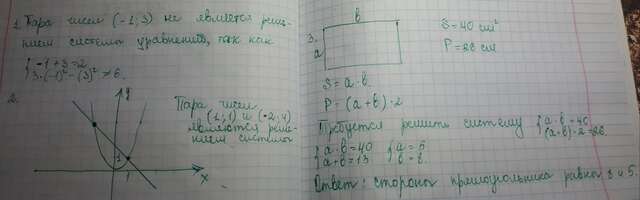 1. Пара чисел (-1; 3) не является реше-
нием системы уравнений, так как
{ -1 + 3 = 2
3·(-1)² - (3)² ≠ 6.
2.
y
Пара чисел
(1; 1) и (-2; 4)
являются реше-
нием системы
1
1
x
3.
b
a
S = 40 см²
P = 26 см
S = a · b
P = (a + b) · 2
Требуется решить систему { a · b = 40
(a + b) · 2 = 26.
{ a · b = 40 { a = 5
a + b = 13 b = 8.
Ответ: стороны прямоугольника равна 8 и 5.